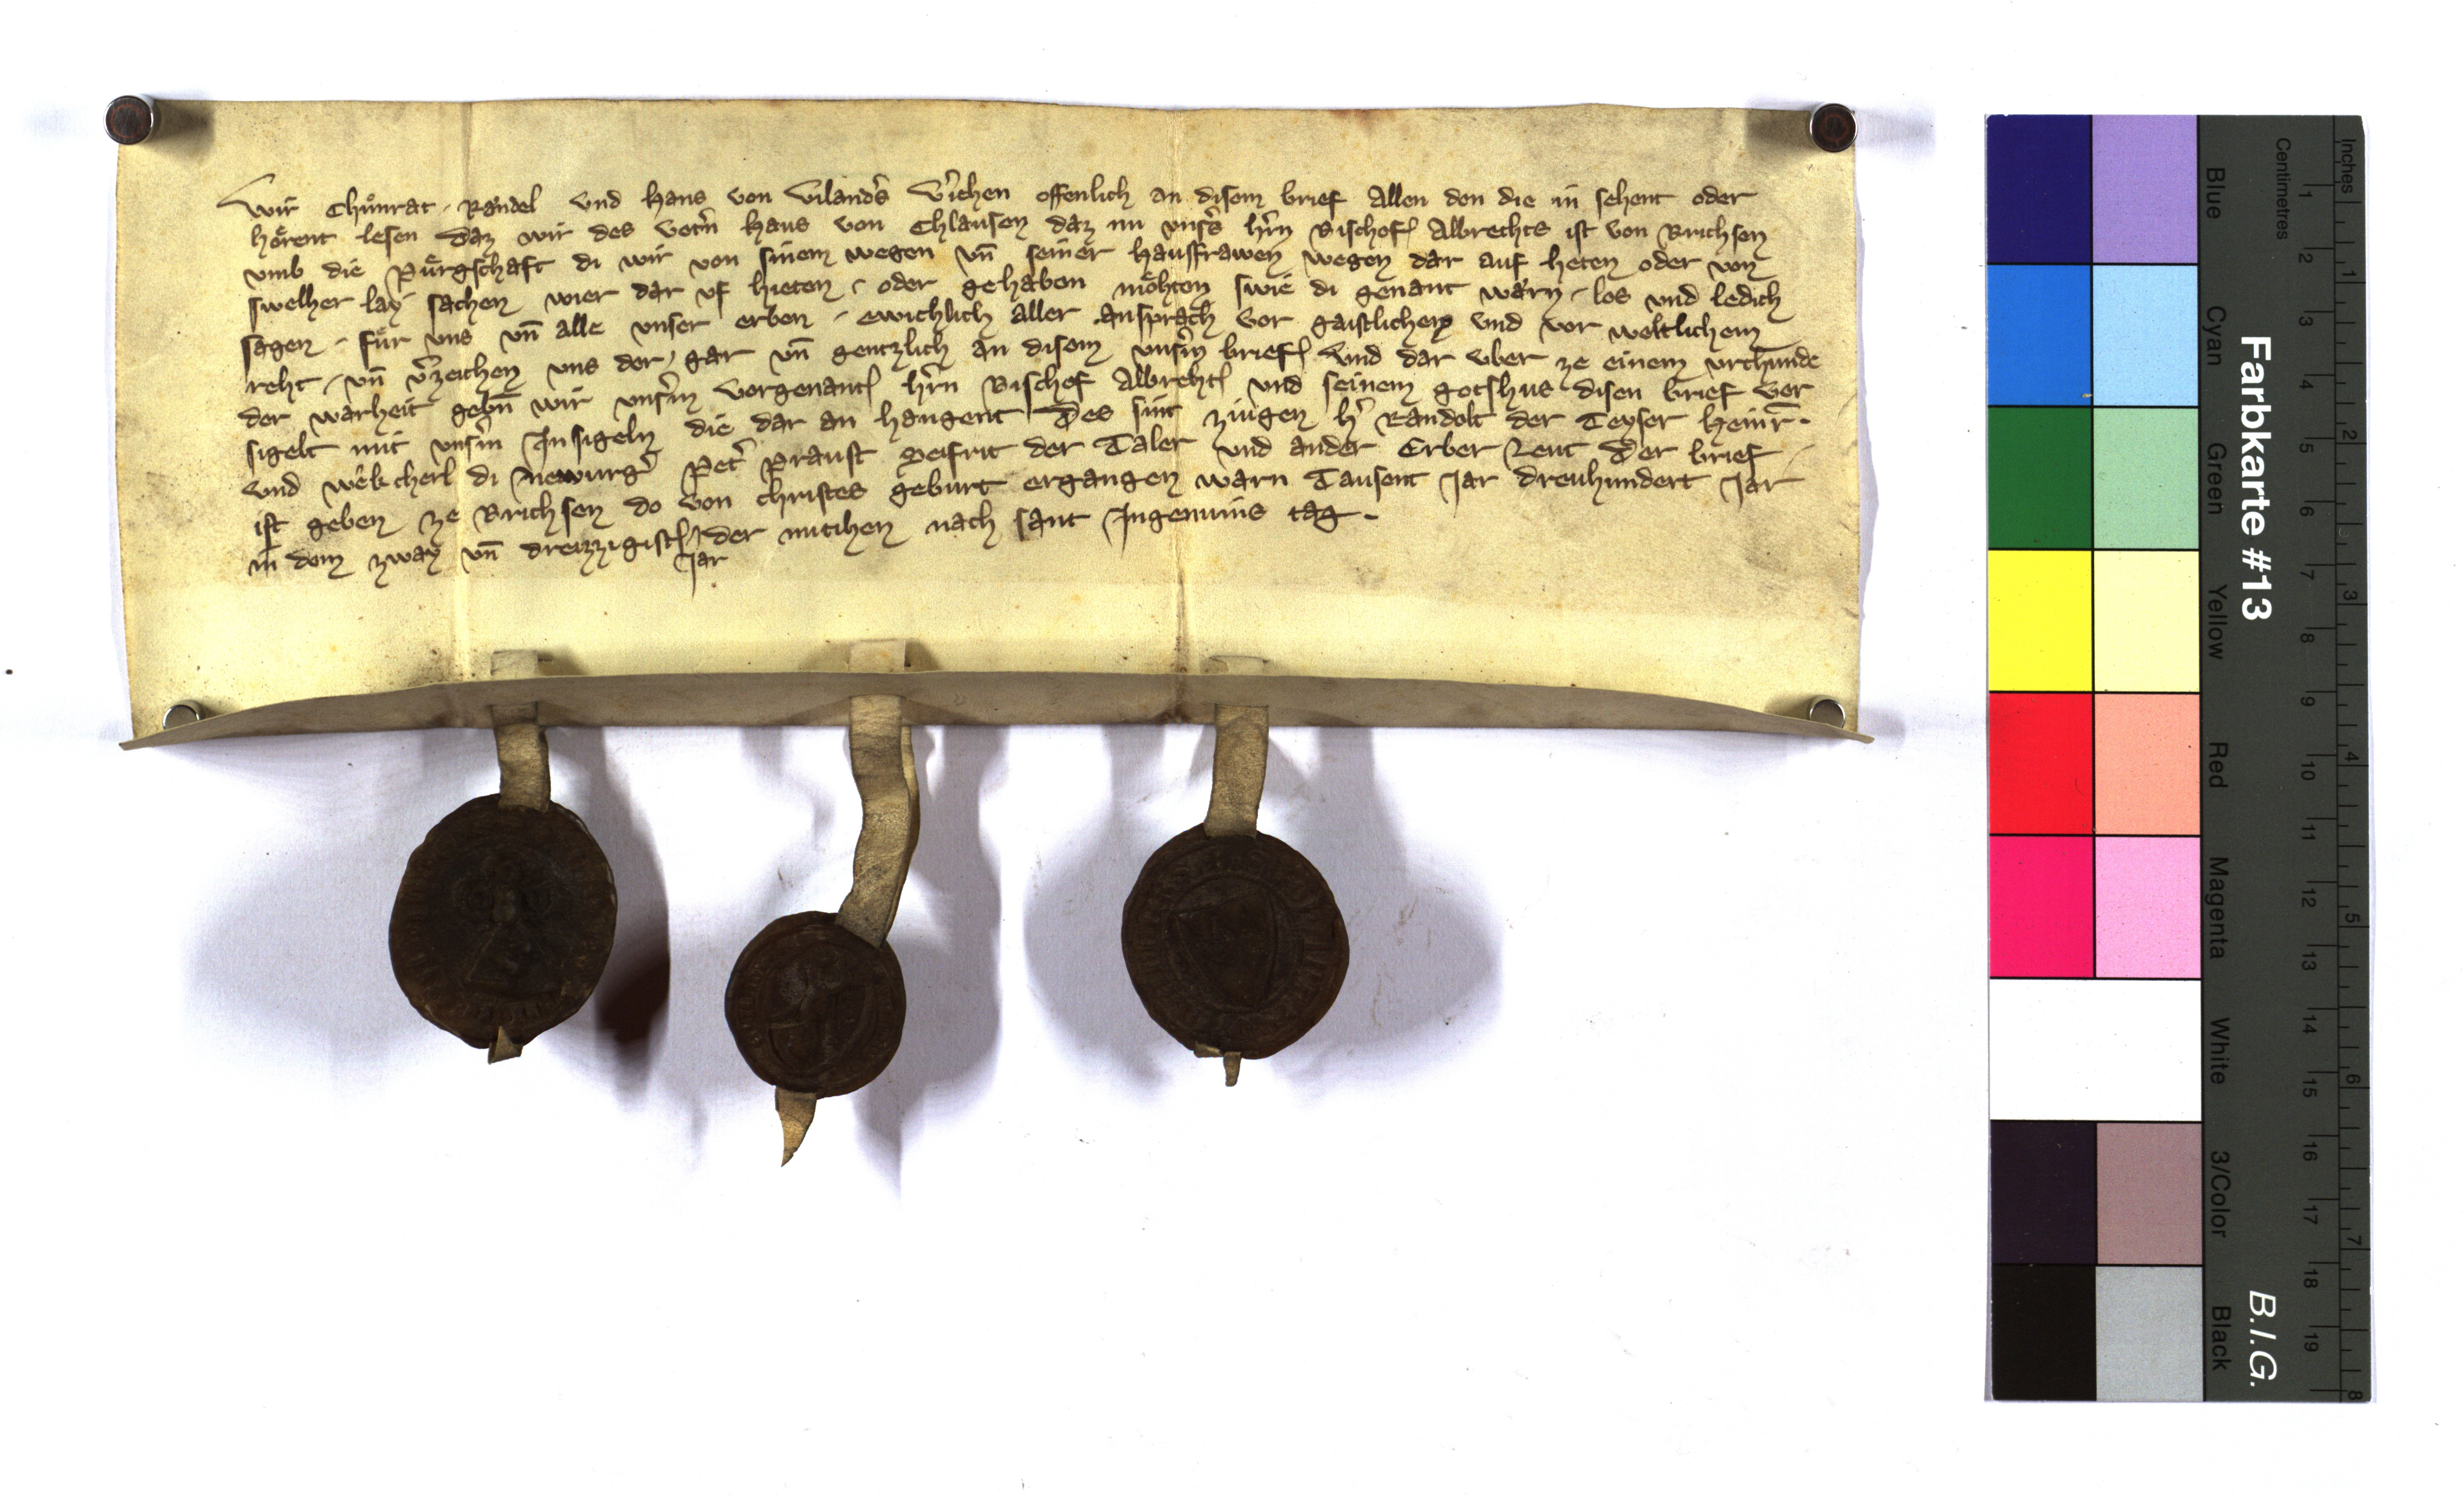 Wir Chuͦnrat Raͤndel vnd Hans von Vilandˢs Vˢiehen offenlich an disem brief Allen den die in sehent oder
hoͤrent lesen Daz wir des Vetˢn Haus von Chlausen daz nu vnsˢs hˢrn Bischof Albrechts ist von Brichsen
vmb die Puͤrgschaft di wir von sinem wegen vn̄ seiner Hausfrawen wegen dar auf heten oder von
swelher lay sachen wier dar vf hieten oder gehaben moͤhten swie di genant waͤrn los vnd ledich
sagen fuͤr vns vn̄ alle vnser erben ewichlich aller ansprach vor gaistlichem vnd vor weltlichem
reht vn̄ vˢzeichen vns der gar vn̄ gentzlich an disem vnsˢm brief Vnd dar vber ze einem vrchunde
der warheit gebn̄ wir vnsˢm vorgenant hˢrn Bischof Albreht vnd seinem gotshus disen brief vor
sigelt mit vnsˢm Insigeln die dar an hangent Des sint ziugen hˢ Randolt der Teyser Heinr̄
vnd di Newurgˢ Petˢ Praust Seifrit der Taler vnd ander Erber Leut Der brief
ist geben ze Brichsen do von christes geburt ergangen warn Tausent Jar dreuhundert Jar
in dem zway vn̄ dreizzigist Jar der mitihen nach sant Ingenuins tag
Farbkarte #13
B.I.G.
Centimetres
Inches
Blue
Cyan
Green
Yellow
Red
Magenta
White
3/Color
Black
1 2 3 4 5 6 7 8 9 10 11 12 13 14 15 16 17 18 19
1 2 3 4 5 6 7 8